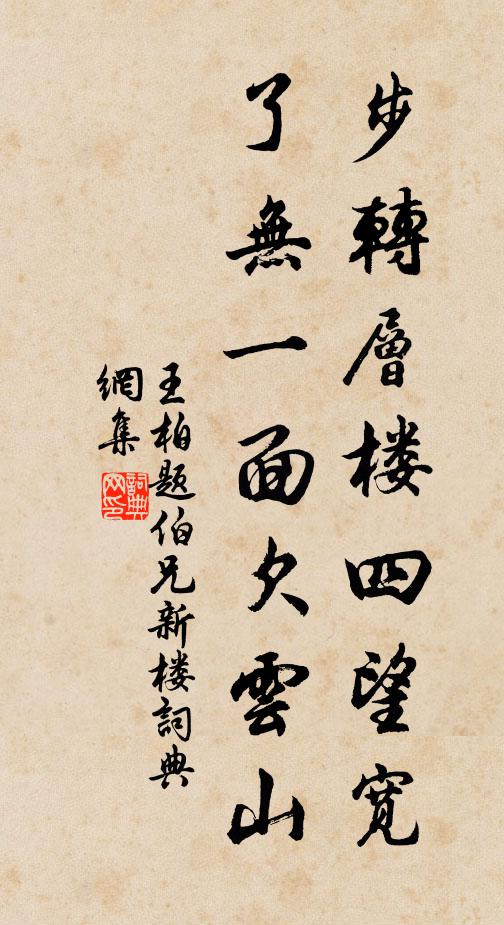 步轉層楼四望寛
了無一面欠雲山
王柏题伯兄新楼詞典
網集
詞典网印